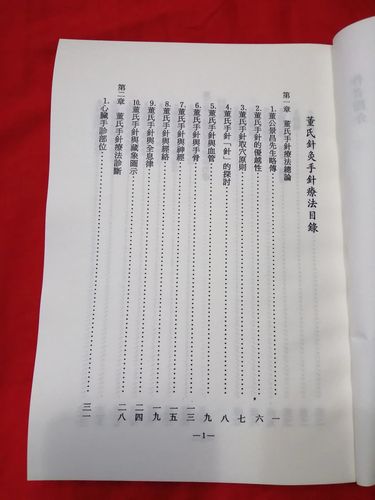 董氏針灸手針療法目錄
第一章　董氏手針療法總論
1.董公景昌先生略傳……………一
2.董氏手針的優越性……………六
3.董氏手針取穴原則……………七
4.董氏手針「針」的探討……………八
5.董氏手針與血管……………九
6.董氏手針與手骨……………一三
7.董氏手針與神經……………一五
8.董氏手針與經絡……………一九
9.董氏手針與全息律……………二四
10.董氏手針與藏象圖示……………二八
第二章　董氏手針療法診斷
1.心臟手診部位……………三一
—1—